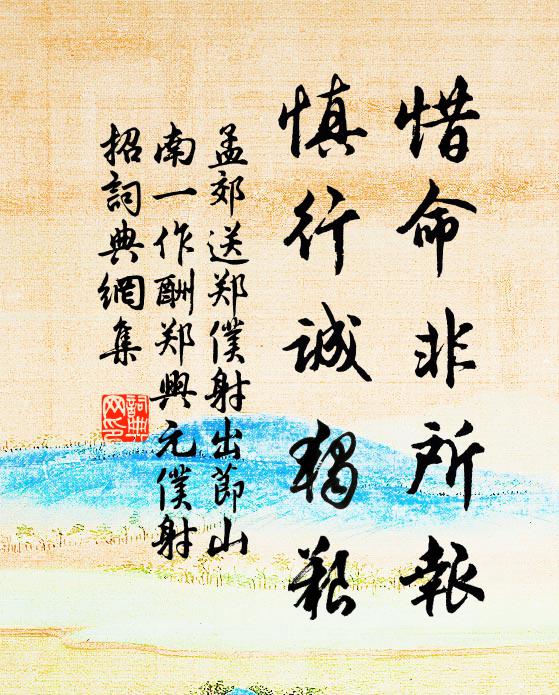 惜命非所報
慎行誠獨艱
孟郊送郑僕射出節山
南一作酬郑興元僕射
招詞典網集
詞典网印